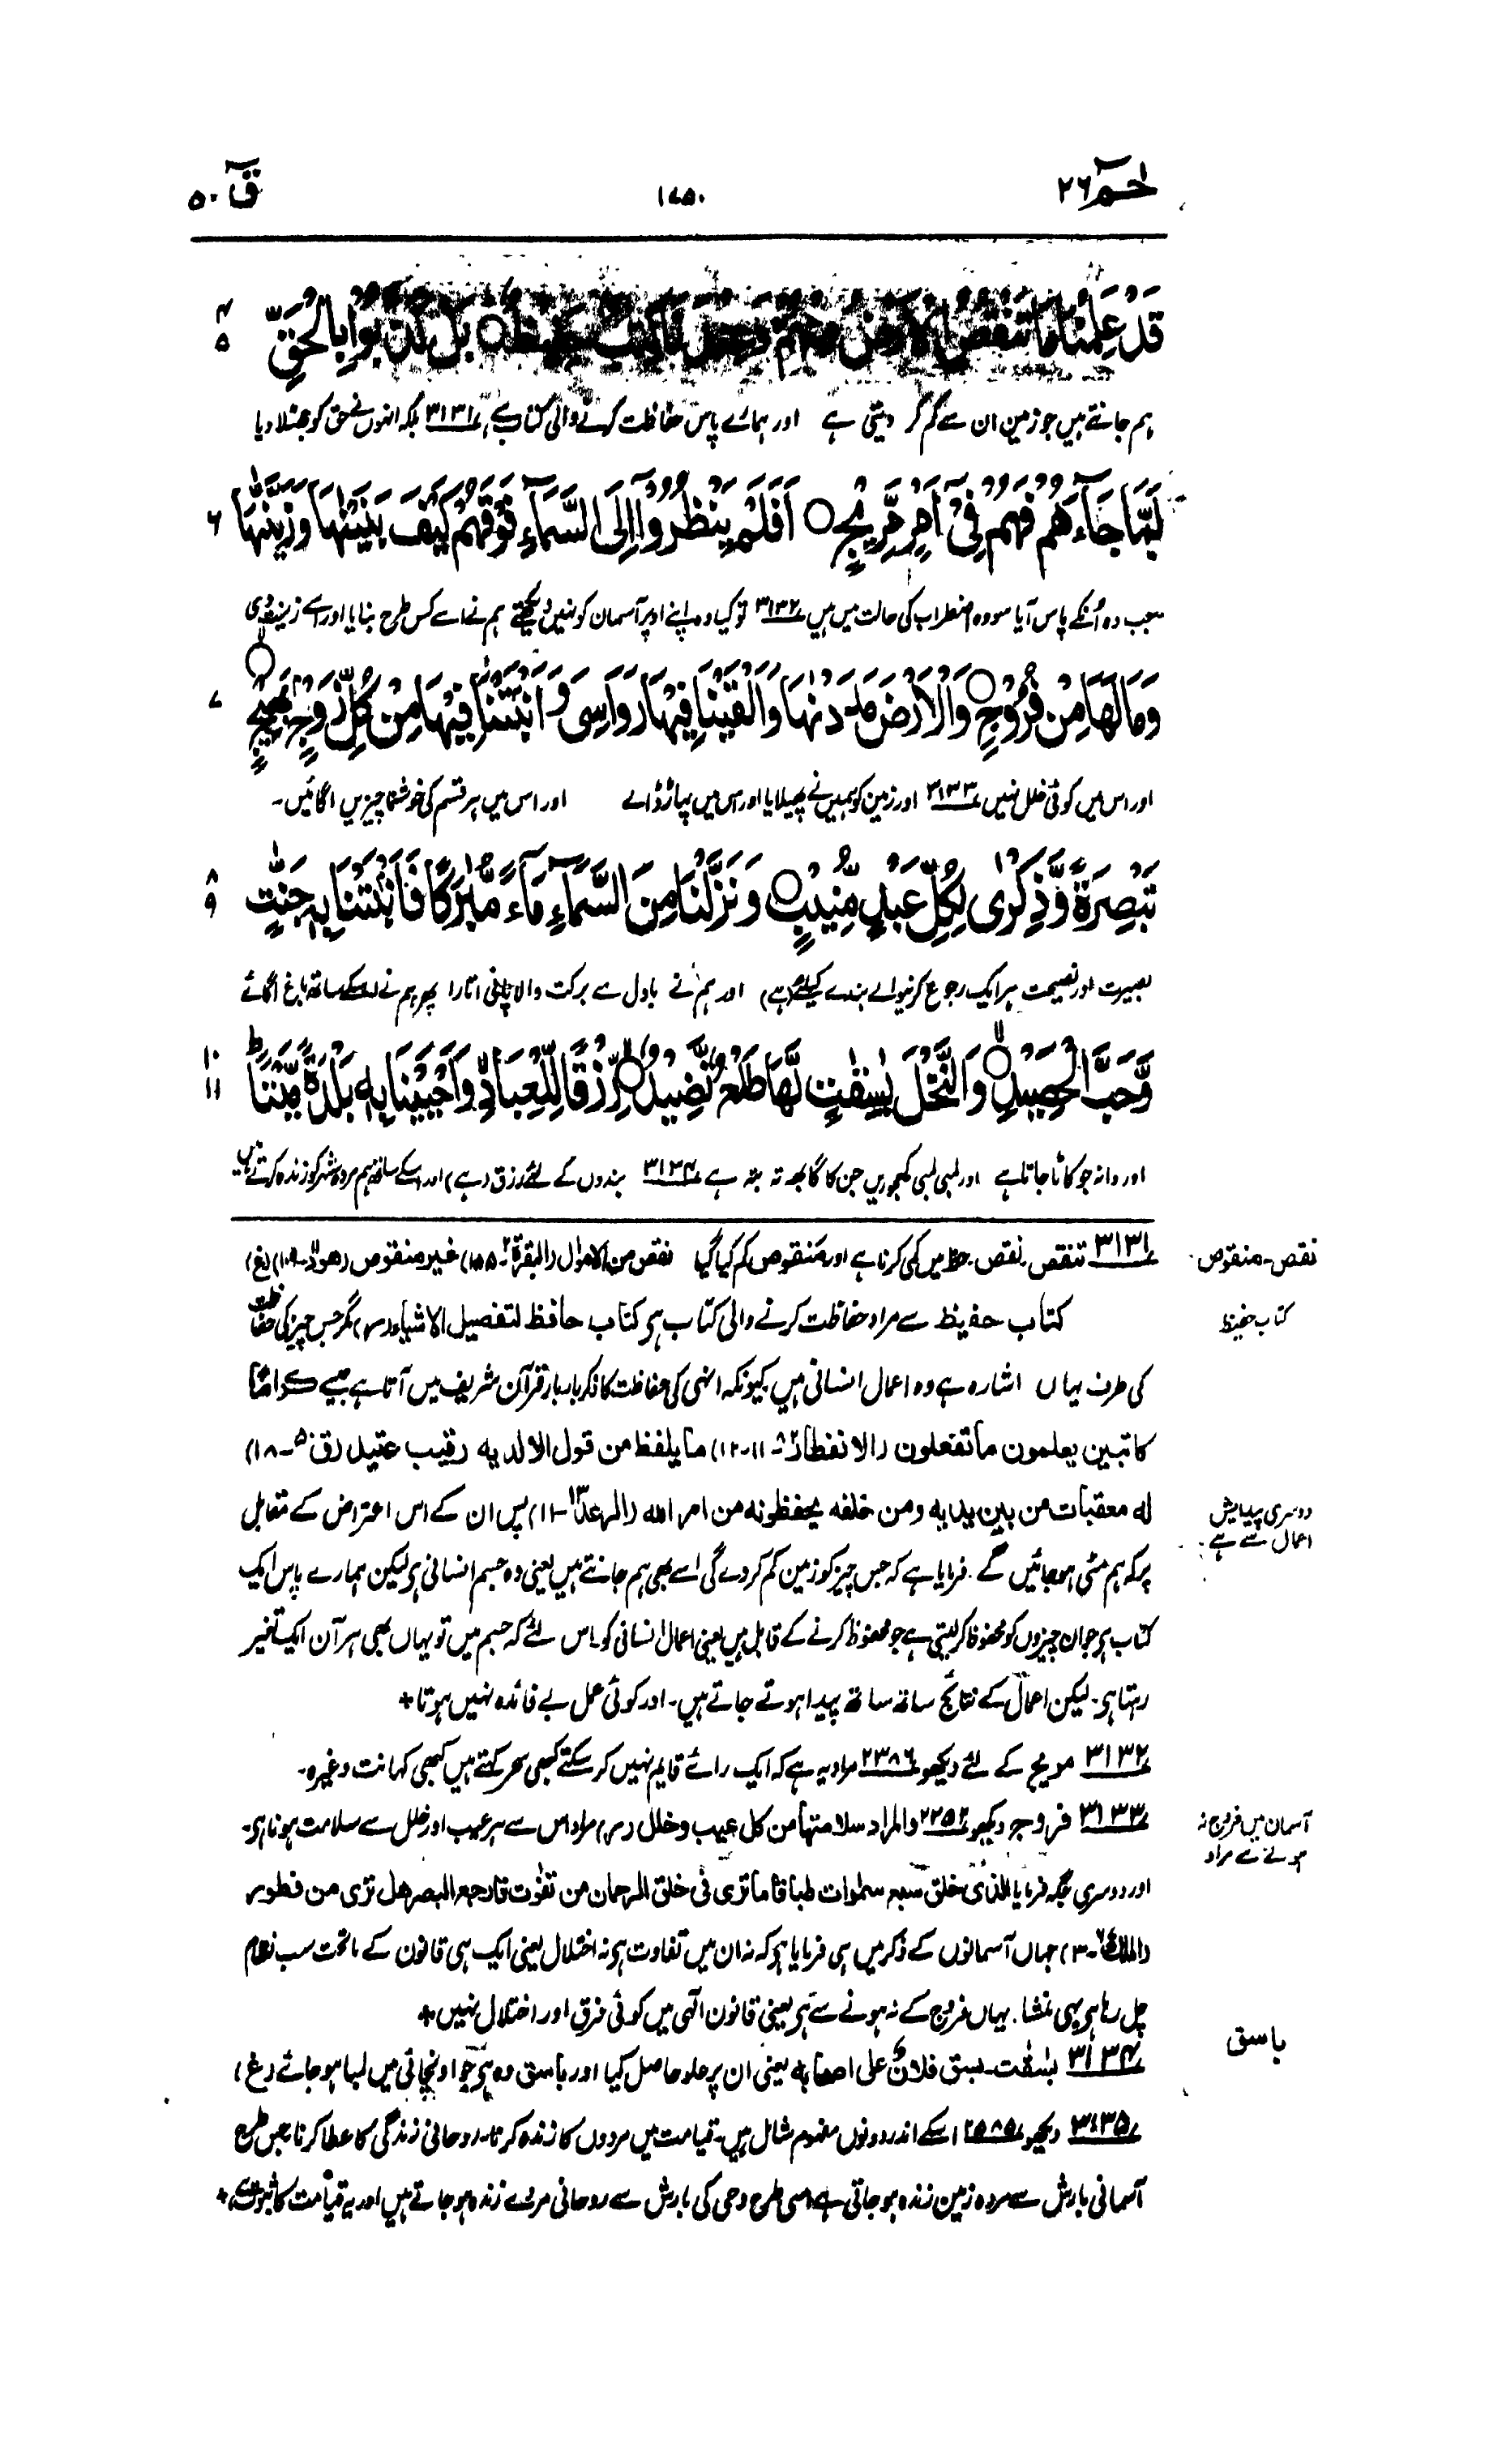 حٰمٓ ۲۶
۱۷۵۰
قٓ ۵۰
قَدْ عَلِمْنَا مَا تَنْقُصُ الْاَرْضُ مِنْهُمْ وَعِنْدَنَا كِتٰبٌ حَفِيْظٌ ○ بَلْ كَذَّبُوْا بِالْحَقِّ
۴
۵
ہم جانتے ہیں جو زمین ان سے کم کر دیتی ہے اور ہمارے پاس حفاظت کرنے والی کتاب ہے، ۳۱۳۱ بلکہ انہوں نے حق کو جھٹلا دیا
لَمَّا جَآءَهُمْ فَهُمْ فِیْۤ اَمْرٍ مَّرِیْجٍ ○ اَفَلَمْ یَنْظُرُوْۤا اِلَی السَّمَآءِ فَوْقَهُمْ كَیْفَ بَنَیْنٰهَا وَزَیَّنّٰهَا
۶
جب وہ اُنکے پاس آیا سو وہ اضطراب کی حالت میں ہیں ۳۱۳۲ تو کیا وہ اپنے اوپر آسمان کو نہیں دیکھتے ہم نے اسے کس طرح بنایا اور اسے زینت دی
وَمَا لَهَا مِنْ فُرُوْجٍ ○ وَالْاَرْضَ مَدَدْنٰهَا وَاَلْقَیْنَا فِیْهَا رَوَاسِیَ وَاَنْۢبَتْنَا فِیْهَا مِنْ كُلِّ زَوْجٍۭ بَهِیْجٍ ○
۷
اور اس میں کوئی خلل نہیں ۳۱۳۳ اور زمین کو ہمیں نے پھیلایا اور اس میں پہاڑ ڈالے اور اس میں ہر قسم کی خوشنما چیزیں اگائیں۔
تَبْصِرَةً وَّذِكْرٰی لِكُلِّ عَبْدٍ مُّنِیْبٍ ○ وَنَزَّلْنَا مِنَ السَّمَآءِ مَآءً مُّبٰرَكًا فَاَنْۢبَتْنَا بِهٖ جَنّٰتٍ
۸
۹
بصیرت اور نصیحت ہر ایک رجوع کرنیوالے بندے کیلئے (ہے) اور ہم نے بادل سے برکت والا پانی اتارا پھر ہم نے اسکے ساتھ باغ اگائے
وَّحَبَّ الْحَصِیْدِ ○ وَالنَّخْلَ بٰسِقٰتٍ لَّهَا طَلْعٌ نَّضِیْدٌ ○ رِّزْقًا لِّلْعِبَادِ وَاَحْیَیْنَا بِهٖ بَلْدَةً مَّیْتًا ط
۱۰
۱۱
اور دانہ جو کاٹا جاتا ہے اور لمبی لمبی کھجوریں جن کا گابھہ تہ بتہ ہے ۳۱۳۴ بندوں کے لئے رزق (ہے) اور اسکے ساتھ ہم مردہ شہر کو زندہ کرتے ہیں
۳۱۳۱ تنقص۔ نقص۔ حظ میں کمی کرنا ہے اور منقوص کم کیا گیا نقص من الاموال (البقرۃ ۲۔۱۵۵) غیر منقوص (ھود ۱۱۔۱۰۹) (غ)
نقص۔ منقوص
کتاب حفیظ سے مراد حفاظت کرنے والی کتاب ہے کتاب حافظ لتفصیل الاشیاء (ر) مگر جس چیز کی حفاظت
کتاب حفیظ
کی طرف یہاں اشارہ ہے وہ اعمال انسانی ہیں کیونکہ انہی کی حفاظت کا ذکر بار بار قرآن شریف میں آتا ہے جیسے کراما
کاتبین یعلمون ما تفعلون (الانفطار ۸۲۔۱۱-۱۲) ما یلفظ من قول الا لدیه رقیب عتید (ق ۵۰۔۱۸)
له معقبات من بین یدیه ومن خلفه یحفظونه من امر الله (الرعد ۱۳۔۱۱) پس ان کے اس اعتراض کے مقابل
دوسری پیدایش
اعمال سے ہے۔
پر کہ ہم مٹی ہو جائیں گے۔ فرمایا ہے کہ جس چیز کو زمین کم کر دے گی اسے بھی ہم جانتے ہیں یعنی وہ جسم انسانی ہے لیکن ہمارے پاس ایک
کتاب ہے جو ان چیزوں کو محفوظ کر لیتی ہے جو محفوظ کرنے کے قابل ہیں یعنی اعمال انسانی کو۔ اس لئے کہ جسم میں تو یہاں بھی ہر آن ایک تغیر
رہتا ہے۔ لیکن اعمال کے نتائج ساتھ ساتھ پیدا ہوتے جاتے ہیں۔ اور کوئی عمل بے فائدہ نہیں ہوتا +
۳۱۳۲ مریج کے لئے دیکھو ۲۳۸۶ مراد یہ ہے کہ ایک رائے قایم نہیں کر سکتے کبھی سحر کہتے ہیں کبھی کہانت وغیرہ۔
۳۱۳۳ فروج دیکھو ۲۲۵۲ والمراد سلامتها من کل عیب وخلل (ر) مراد اس سے ہر عیب اور خلل سے سلامت ہونا ہے۔
آسمان میں فروج نہ
ہونے سے مراد
اور دوسری جگہ فرمایا الذی خلق سبع سمٰوات طباقا ما تری فی خلق الرحمان من تفوت فارجع البصر هل تری من فطور
(الملک ۶۷۔۳) جہاں آسمانوں کے ذکر میں ہی فرمایا ہے کہ نہ ان میں تفاوت ہے نہ اختلال یعنی ایک ہی قانون کے ماتحت سب نظام
چل رہا ہے یہی منشا۔ یہاں فروج کے نہ ہونے سے ہے یعنی قانون الٰہی میں کوئی فرق اور اختلال نہیں +
۳۱۳۴ بٰسقٰت۔ بسق فلان علی اصحابه یعنی ان پر علو حاصل کیا اور باسق وہ ہے جو اونچائی میں لمبا ہو جائے (غ)
باسق
۳۱۳۵ دیکھو ۲۵۸۵ اسکے اندر دونوں مفہوم شامل ہیں۔ قیامت میں مردوں کا زندہ کرنا۔ روحانی زندگی کا عطا کرنا جس طرح
آسمانی بارش سے مردہ زمین زندہ ہو جاتی ہے اسی طرح وحی کی بارش سے روحانی مردے زندہ ہو جاتے ہیں اور یہ قیامت کا ثبوت ہے +